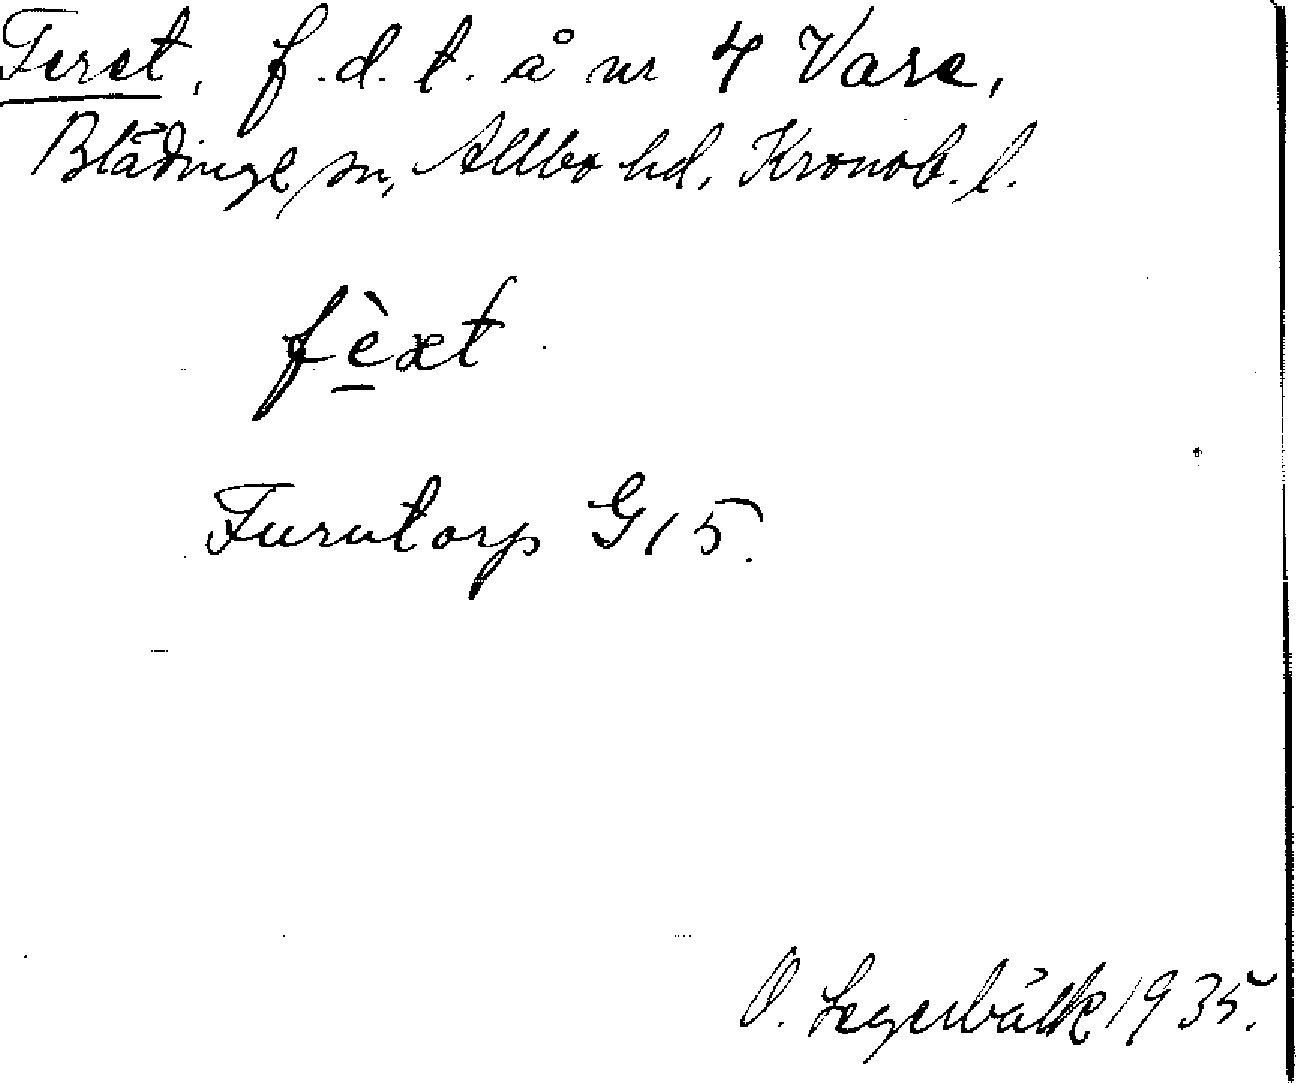 Feret, f.d.t. å nr 4 Vare,
Blädinge sn, Allbo hd, Kronob. l.
fèxt
Furutorp G15.
O. Lagerbälk 1935.